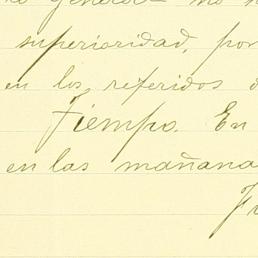 general no
superioridad, por
en los referidos
Tiempo. En
en las mañana
Fr